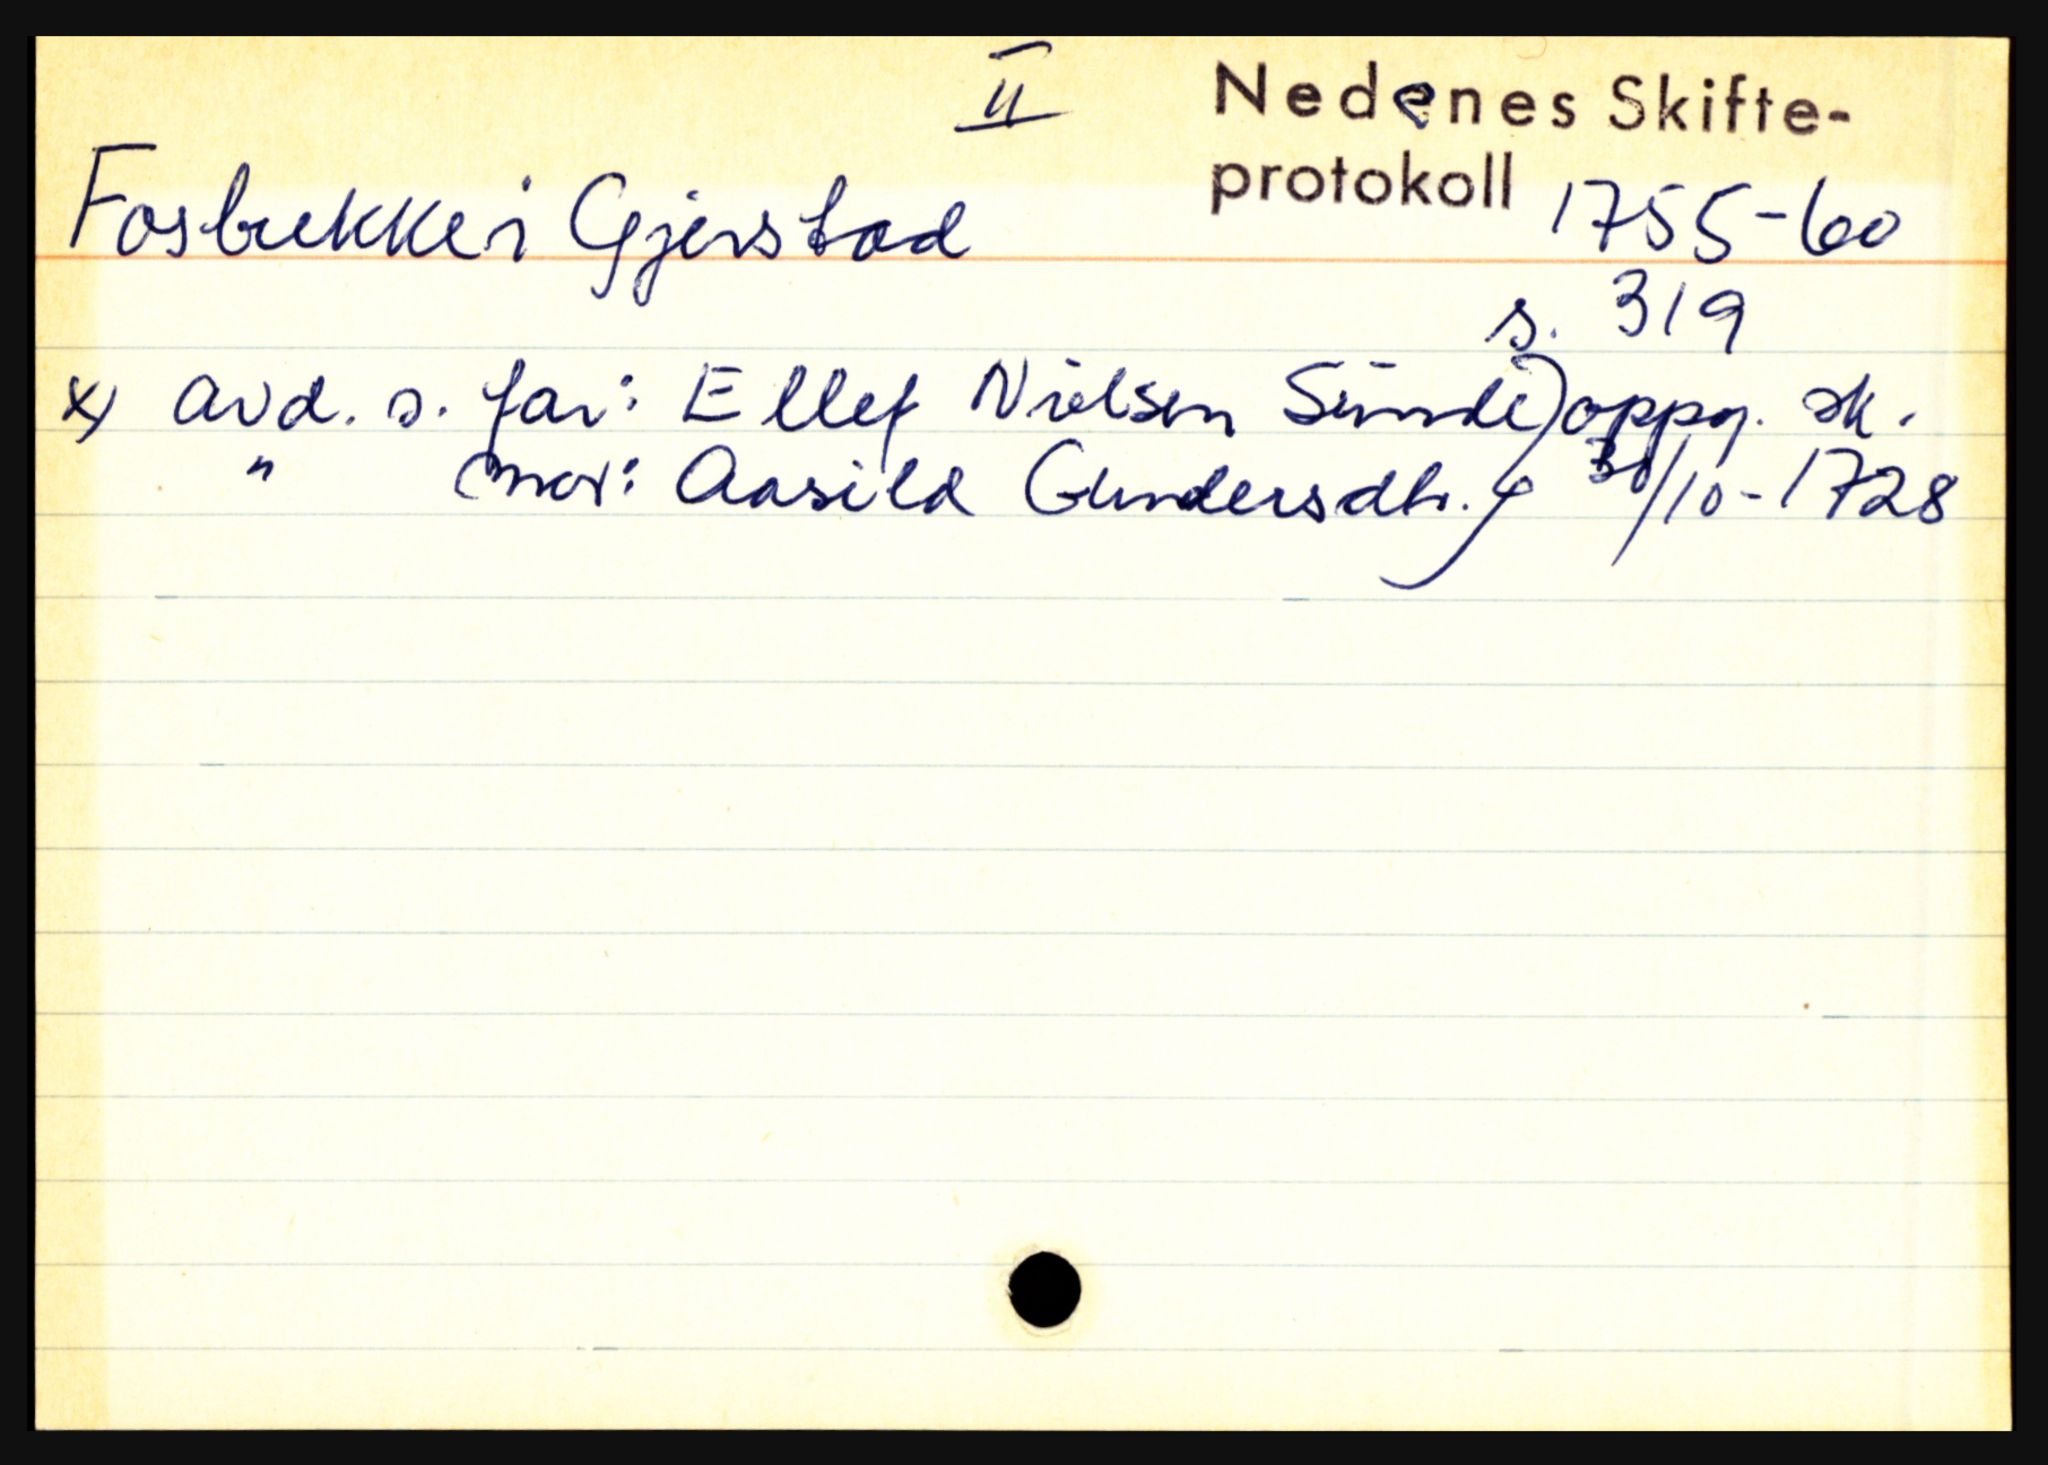 II
Nedenes Skifte-
protokoll 1755-60
Fosbrekke i Gjerstad
s. 319
x) avd. s. far: Ellef Nielsen Sunde) oppg. sk.
" mor: Aasild Gundersdtr. 30/10-1728